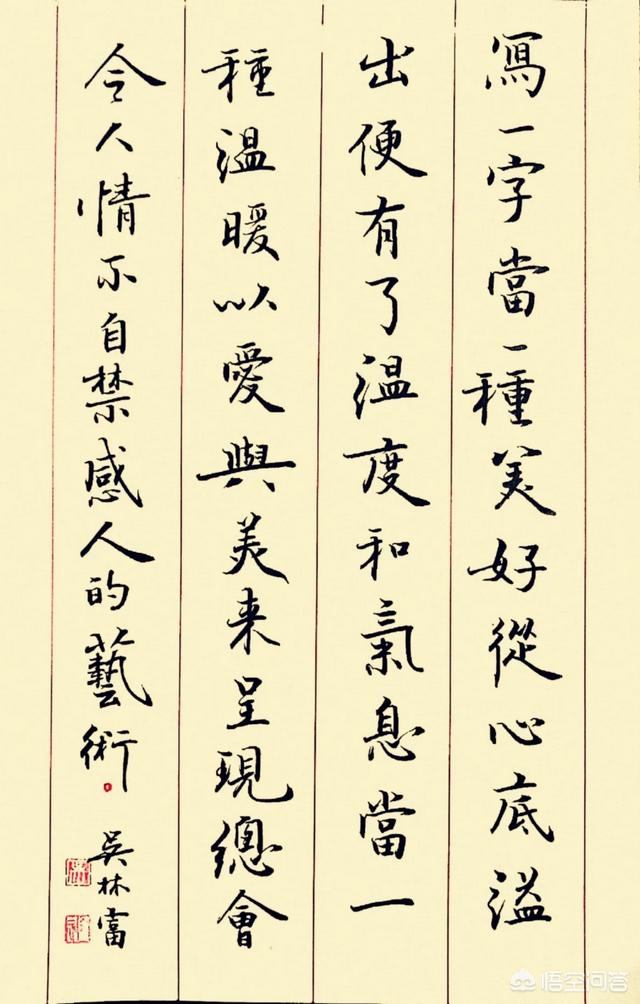 寫一字當一種美好從心底溢
出便有了溫度和氣息當一
種溫暖以愛與美来呈現總會
令人情不自禁感人的藝術。
吳林富
悟空问答